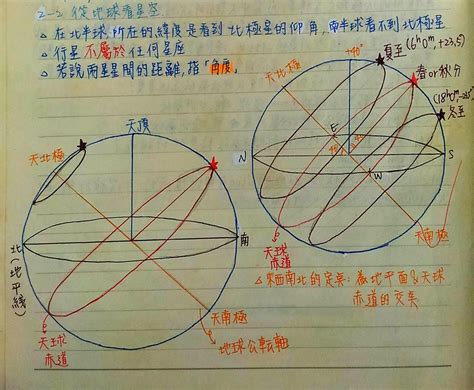 2-2 從地球看星空
△ 在北半球,所在的緯度是看到北極星的仰角,南半球看不到北極星
△ 行星不屬於任何星座
△ 若說兩星星間的距離,指「角度」
天北極
+90°
夏至(6ʰ0ᵐ,+23,5)
春or秋分
冬至
天頂
天北極
N
E
W
S
北(地平線)
南
天球赤道
天南極
天球赤道
天南極
地球公転軸
△ 東西南北的定義: 為地平面&天球
赤道的交集